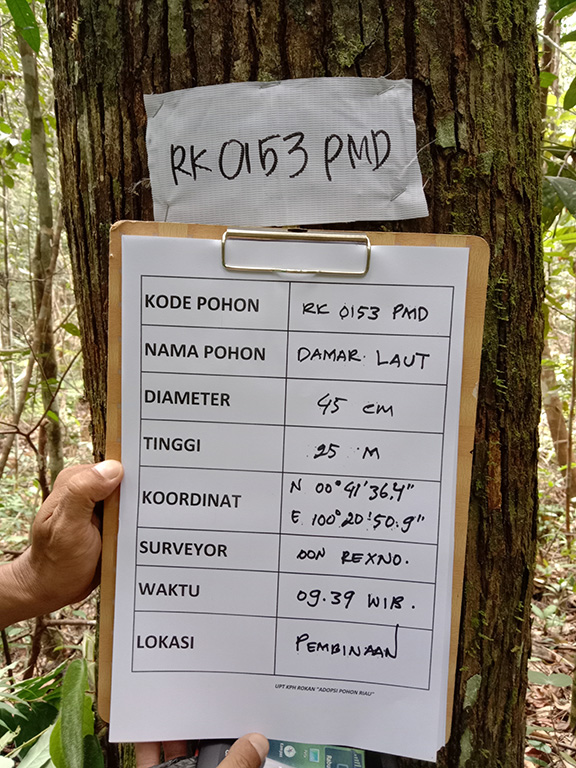 RK 0153 PMD
KODE POHON RK 0153 PMD
NAMA POHON DAMAR LAUT
DIAMETER 45 cm
TINGGI 25 M
KOORDINAT N 00° 41' 36.4"
E 100° 20' 50.9"
SURVEYOR DON REXNO.
WAKTU 09.39 WIB.
LOKASI PEMBINAAN
UPT KPH ROKAN "ADOPSI POHON RIAU"